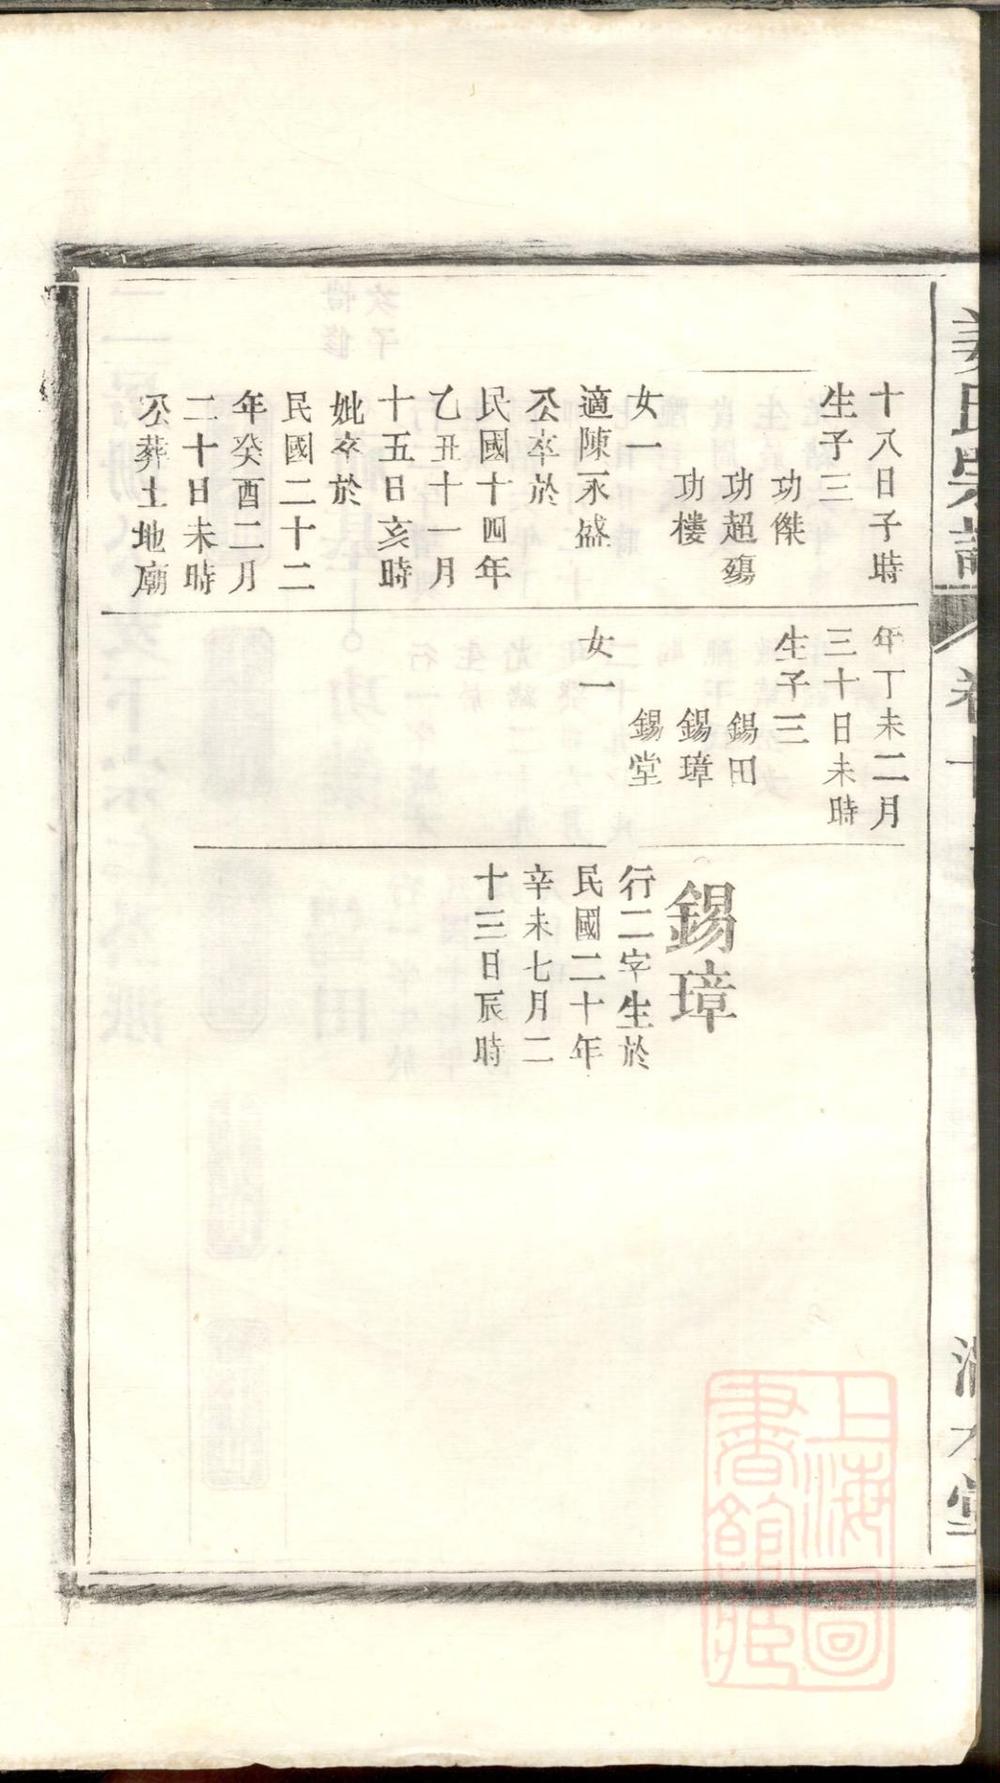 十八日子時
生子三
功傑
功超殤
功樓
女一
適陳永盛
公卒於
民國十四年
乙丑十一月
十五日亥時
妣卒於
民國二十二
年癸酉二月
二十日未時
公葬土地廟
年丁未二月
三十日未時
生子三
錫田
錫璋
錫堂
女一
錫璋
行二字生於
民國二十年
辛未七月二
十三日辰時
上海圖
書館藏